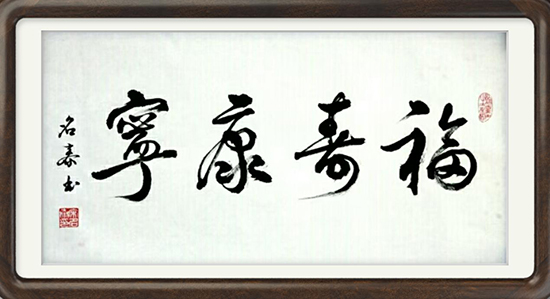 福寿康寧
名泰书